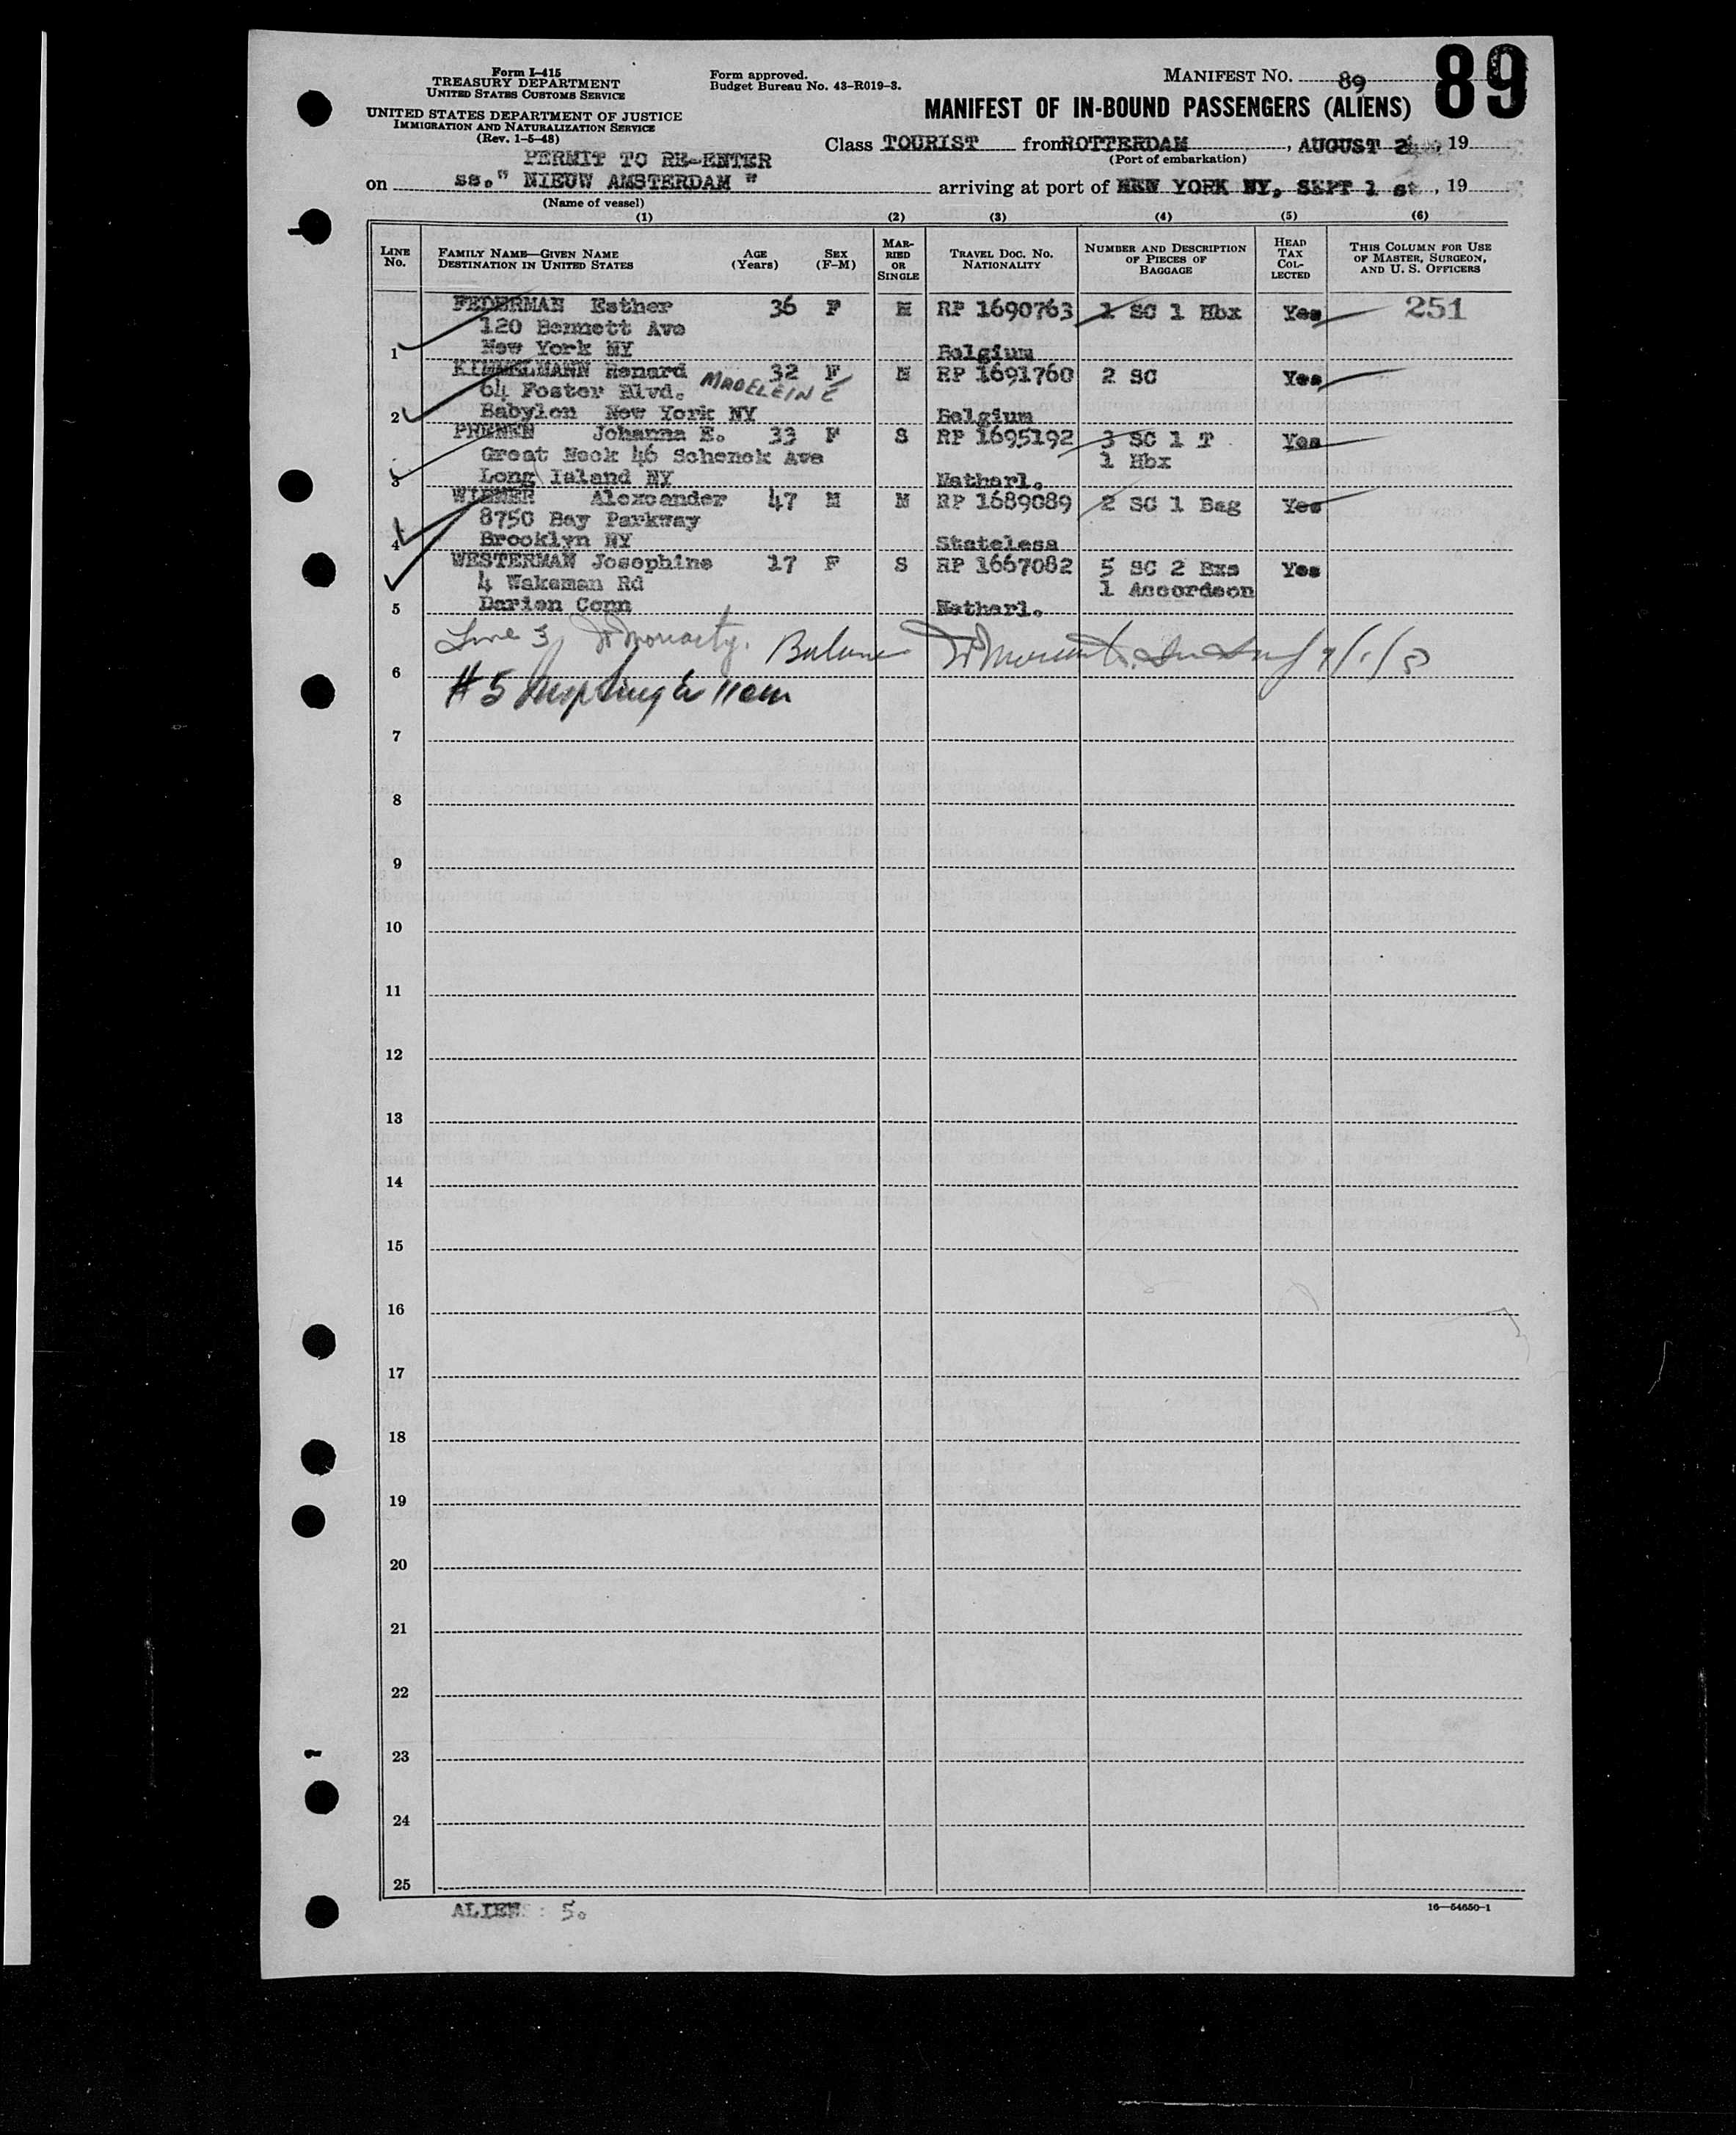 Form I-415
TREASURY DEPARTMENT
UNITED STATES CUSTOMS SERVICE
UNITED STATES DEPARTMENT OF JUSTICE
IMMIGRATION AND NATURALIZATION SERVICE
(Rev. 1-5-48)
Form approved.
Budget Bureau No. 43-R019-3.
MANIFEST No. 89
89
MANIFEST OF IN-BOUND PASSENGERS (ALIENS)
Class TOURIST from ROTTERDAM, AUGUST 19
(Port of embarkation)
PERMIT TO RE-ENTER
on ss." NIEUW AMSTERDAM " arriving at port of NEW YORK NY, SEPT 1 st, 19
(Name of vessel)
(1) (2) (3) (4) (5) (6)
LINE No. FAMILY NAME—GIVEN NAME DESTINATION IN UNITED STATES AGE (Years) SEX (F-M) MARRIED OR SINGLE TRAVEL DOC. No. NATIONALITY NUMBER AND DESCRIPTION OF PIECES OF BAGGAGE HEAD TAX COLLECTED THIS COLUMN FOR USE OF MASTER, SURGEON, AND U. S. OFFICERS
FEDERMAN Esther 36 F M RP 1690763 1 SC 1 Hbx Yes 251
120 Bennett Ave
1 New York NY Belgium
KIMMELMANN Renard MADELEINE 32 F M RP 1691760 2 SC Yes
64 Foster Blvd.
2 Babylon New York NY Belgium
PRENEN Johanna E. 33 F S RP 1695192 3 SC 1 T Yes
Great Neck 46 Schenck Ave 1 Hbx
3 Long Island NY Netherl.
WIENER Alexcander 47 M M RP 1689089 2 SC 1 Bag Yes
8750 Bay Parkway
4 Brooklyn NY Stateless
WESTERMAN Josephine 17 F S RP 1667082 5 SC 2 Bxs Yes
4 Wakeman Rd 1 Accordeon
5 Darien Conn Netherl.
Line 3, Moriarty.
6
# 5 11 am
7
8
9
10
11
12
13
14
15
16
17
18
19
20
21
22
23
24
25
ALIENS: 5.
16—54650-1